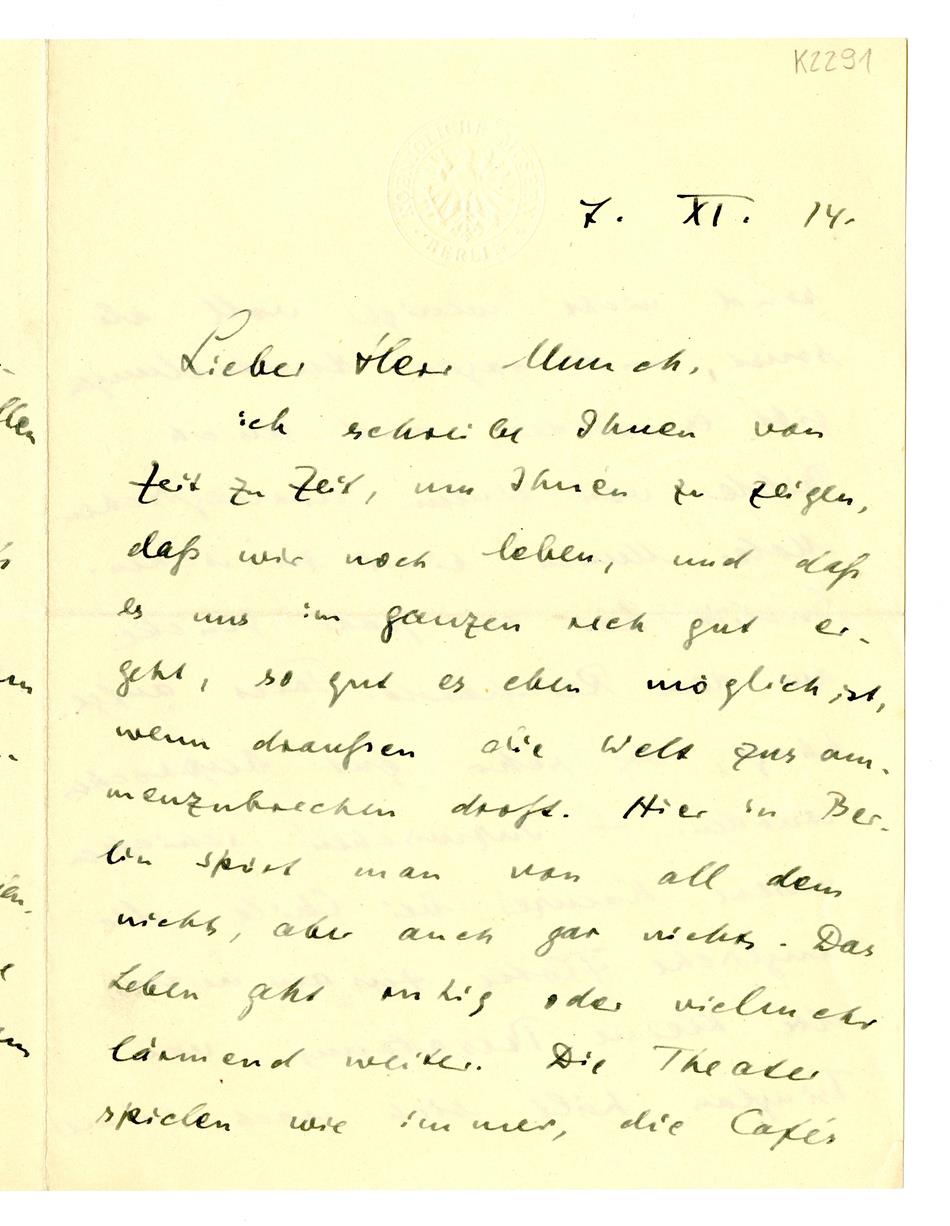 K2291
BERLIN
7. XI. 14.
Lieber Herr Munch,
ich schreibe Ihnen von
Zeit zu Zeit, um Ihnen zu zeigen,
daß wir noch leben, und daß
es uns im ganzen recht gut er-
geht, so gut es eben möglich ist,
wenn draußen die Welt zusam-
menzubrechen droht. Hier in Ber-
lin spürt man von all dem
nichts, aber auch gar nichts. Das
Leben geht ruhig oder vielmehr
lärmend weiter. Die Theater
spielen wie immer, die Cafés